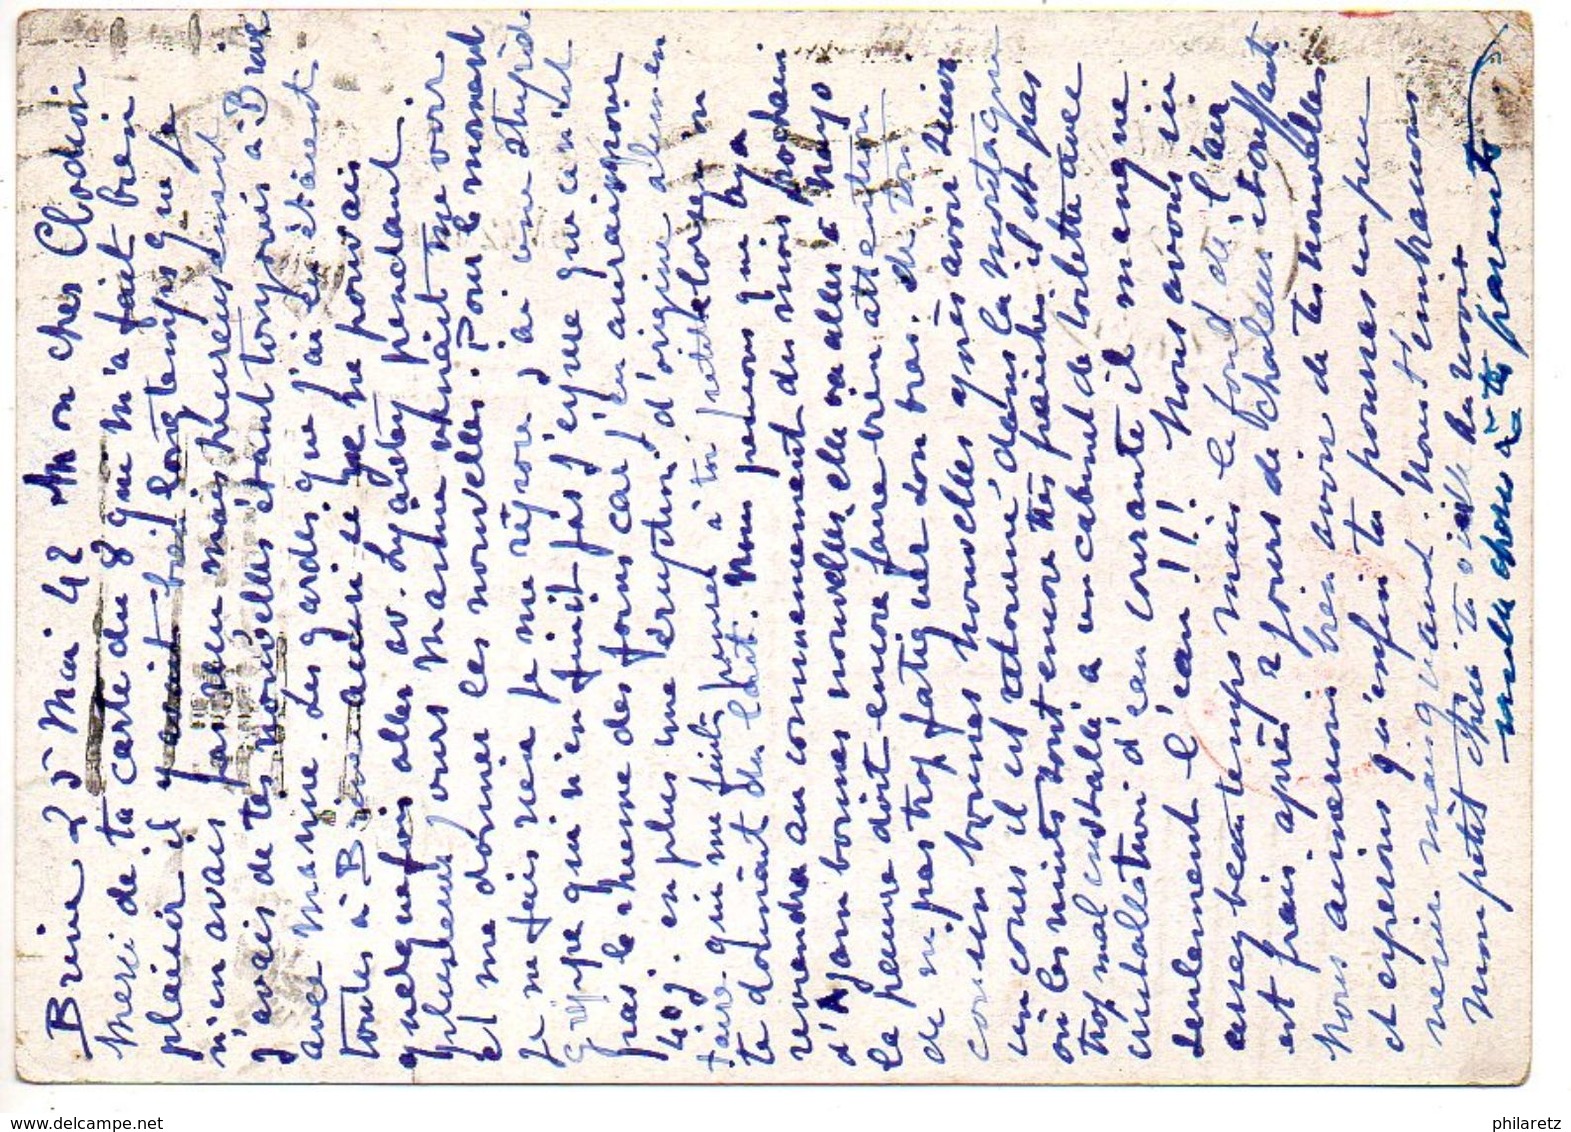 Brive 25 Mai 42 Mon cher Clodoir
Merci de ta carte du 8 que m'a fait bien
plaisir il y avait bien longtemps que je
n'en avais pas eu mais heureusement
j'avais de tes nouvelles étant toujours à Brive
avec Manne. Les gardes que j'ai eu étaient
toutes à Brive aussi je ne pouvais
quelquefois aller av. pendant
plusieurs jours Manne venait me voir
et me donner les nouvelles. Pour le moment
je ne fais rien je me repose, j'ai une stupide
grippe qui n'en finit pas j'espère que ce n'est
pas le rhume des foins car j'en aurais pour
40 j. en plus une éruption d'origine alimen
taire qui me fait penser à ta petite
te donnait du lait. Nous pensons que
reviendra au commencement du mois prochain
d'Agen bonnes nouvelles elle va aller à Mayo
la pauvre doit encore faire bien attention
de ne pas trop fatiguer son bras. de ton
cousin bonnes nouvelles après avoir suivi
un cours il est retourné dans la montagne
où les nuits sont encore très fraîches il est pas
trop mal installé a un cabinet de toilette avec
installation d'eau courante il manque
seulement l'eau!!! Nous avons ici
assez beau temps mais le fond de l'air
est frais après 2 jours de chaleur étouffante
Nous aimerions bien avoir de tes nouvelles
et espérons qu'enfin tu pourras un peu
venir mais quand. Nous t'embrassons
mon petit chéri ta vieille
mille choses à tes parents
philaretz
www.delcampe.net